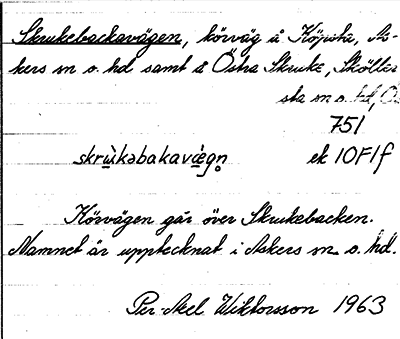 Skrukebackavägen, körväg å Köpsta, As-
kers sn o. hd samt å Östra Skruke, Sköllers-
sta sn o. hd, Ö
751
skrùkəbakavæ̀gn̥ ek 10F1f
Körvägen går över Skrukebacken.
Namnet är upptecknat i Askers sn o. hd.
Per-Axel Wiktorsson 1963